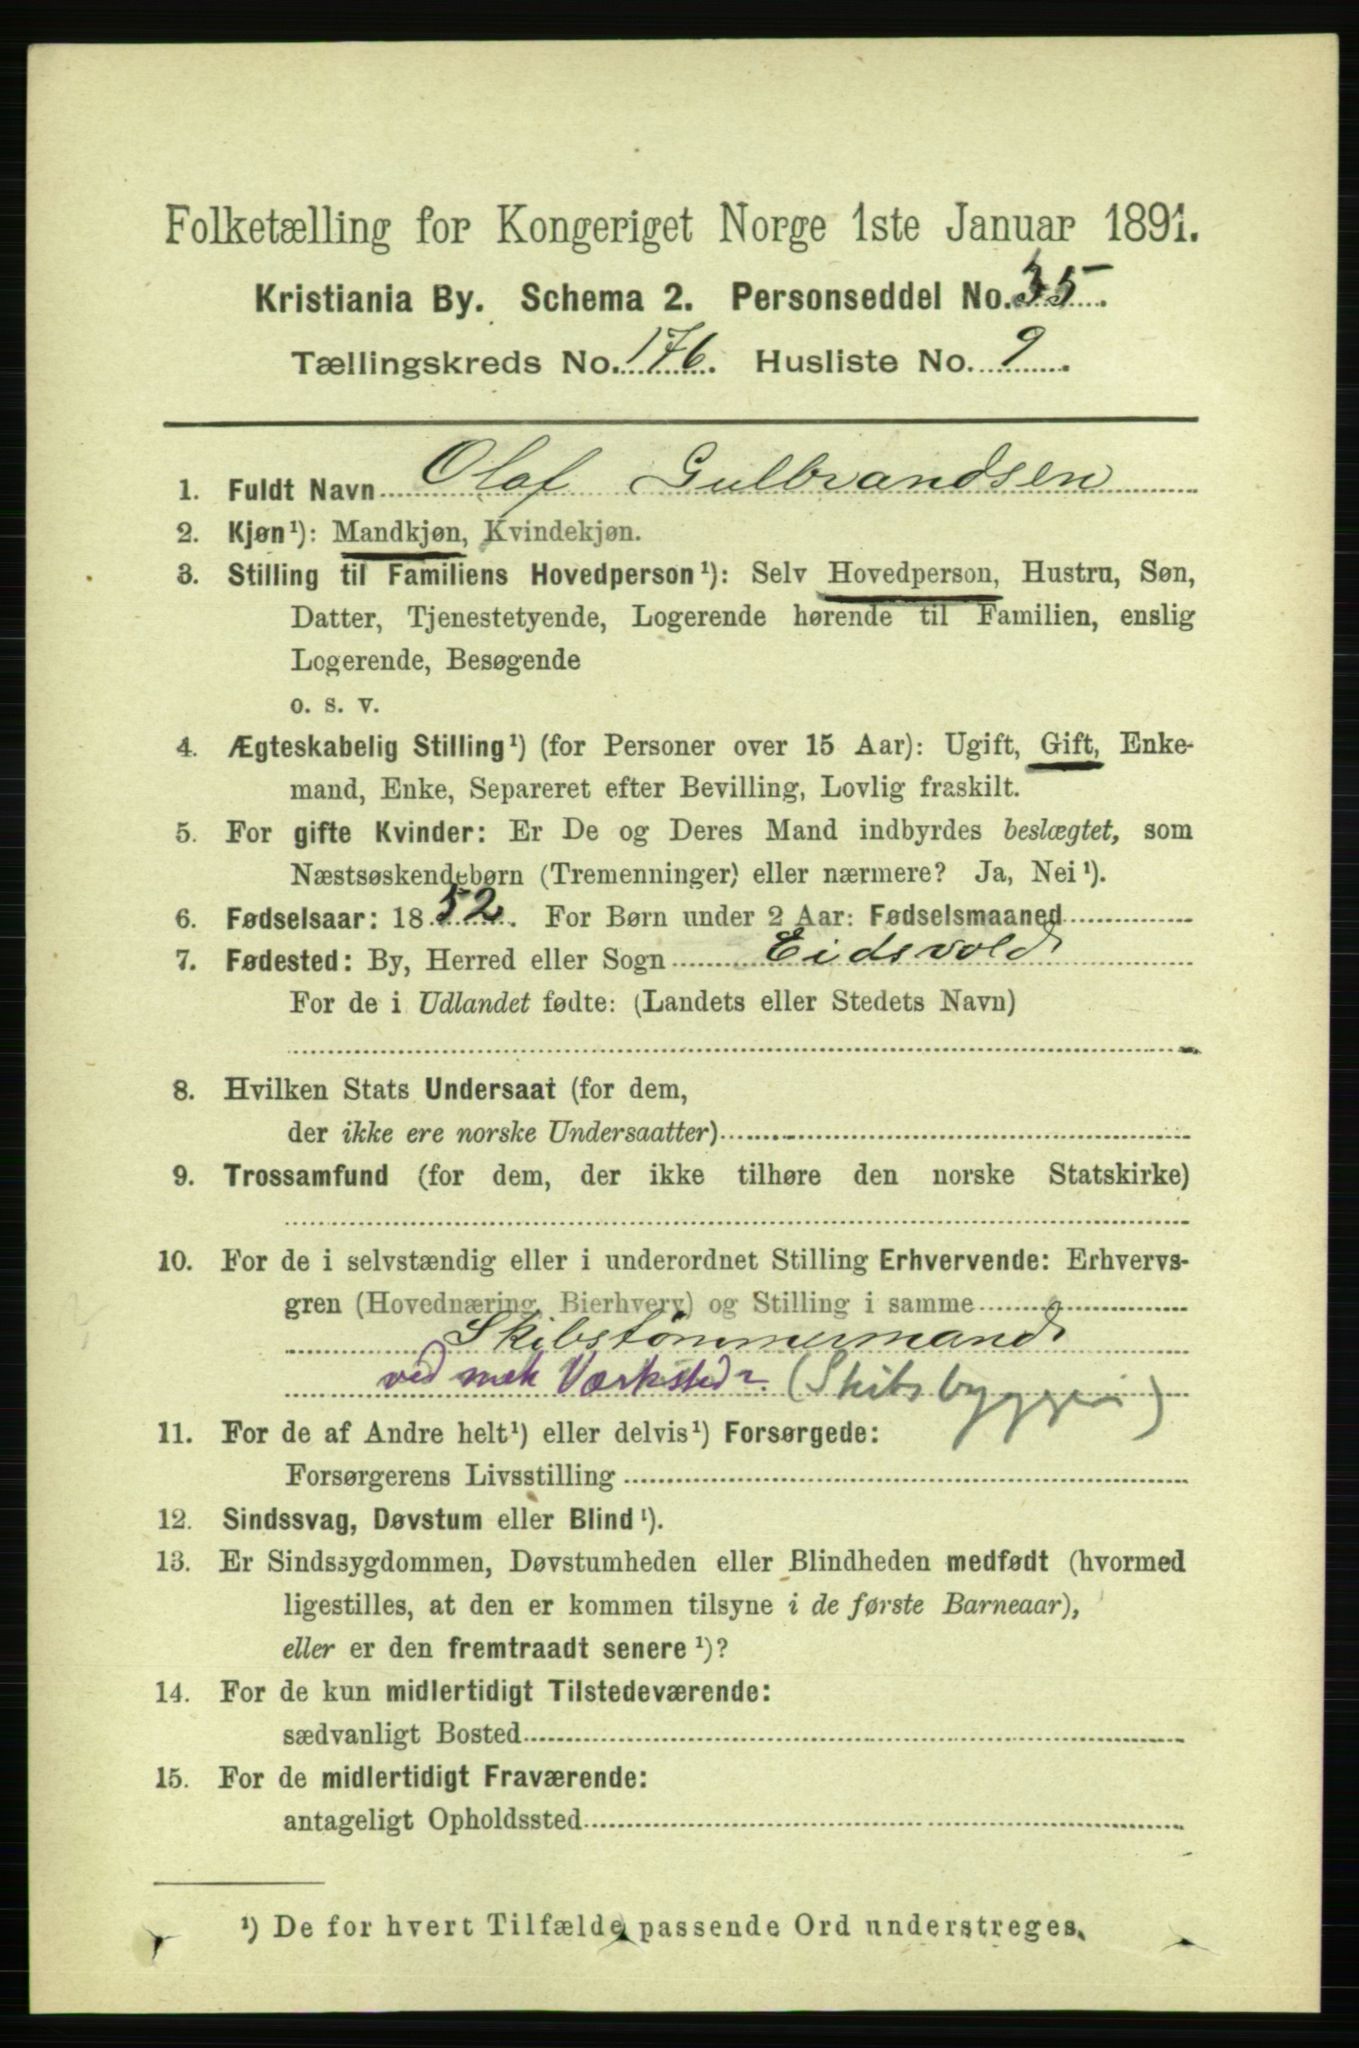 Folketælling for Kongeriget Norge 1ste Januar 1891.
Kristiania By. Schema 2. Personseddel No. 35.
Tællingskreds No. 176. Husliste No. 9.
1. Fuldt Navn Olaf Gulbrandsen
2. Kjøn¹): Mandkjøn, Kvindekjøn.
3. Stilling til Familiens Hovedperson¹): Selv Hovedperson, Hustru, Søn,
Datter, Tjenestetyende, Logerende hørende til Familien, enslig
Logerende, Besøgende
o. s. v.
4. Ægteskabelig Stilling¹) (for Personer over 15 Aar): Ugift, Gift, Enke-
mand, Enke, Separeret efter Bevilling, Lovlig fraskilt.
5. For gifte Kvinder: Er De og Deres Mand indbyrdes beslægtet, som
Næstsøskendebørn (Tremenninger) eller nærmere? Ja, Nei¹).
6. Fødselsaar: 1852. For Børn under 2 Aar: Fødselsmaaned
7. Fødested: By, Herred eller Sogn Eidsvold
For de i Udlandet fødte: (Landets eller Stedets Navn)
8. Hvilken Stats Undersaat (for dem,
der ikke ere norske Undersaatter)
9. Trossamfund (for dem, der ikke tilhøre den norske Statskirke)
10. For de i selvstændig eller i underordnet Stilling Erhvervende: Erhvervs-
gren (Hovednæring, Bierhverv) og Stilling i samme
Skibstømmermand
ved mek Værksted (Skibsbyggeri)
11. For de af Andre helt¹) eller delvis¹) Forsørgede:
Forsørgerens Livsstilling
12. Sindssvag, Døvstum eller Blind¹).
13. Er Sindssygdommen, Døvstumheden eller Blindheden medfødt (hvormed
ligestilles, at den er kommen tilsyne i de første Barneaar),
eller er den fremtraadt senere¹)?
14. For de kun midlertidigt Tilstedeværende:
sædvanligt Bosted
15. For de midlertidigt Fraværende:
antageligt Opholdssted
¹) De for hvert Tilfælde passende Ord understreges.